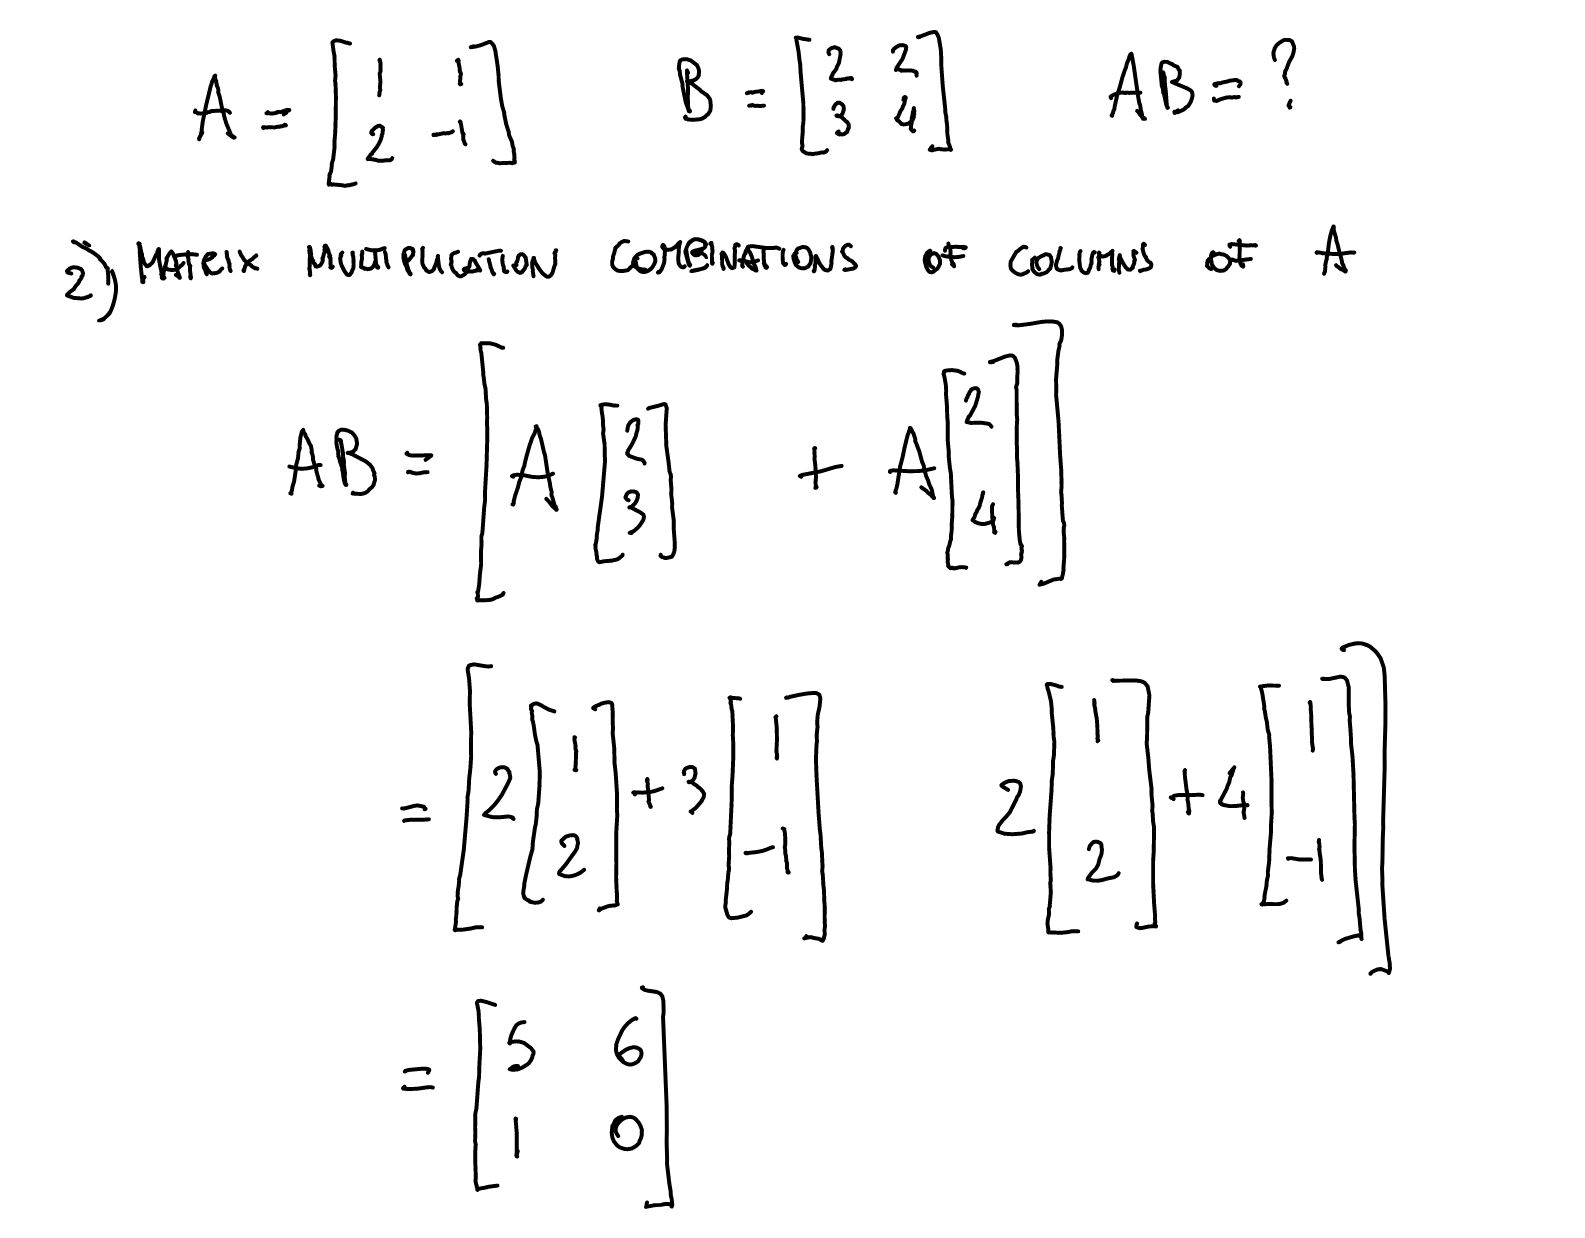 A = [1 1; 2 -1] B = [2 2; 3 4] AB = ?
2) MATRIX MULTIPLICATION COMBINATIONS OF COLUMNS OF A
AB = [A [2; 3] + A [2; 4]]
= [2 [1; 2] + 3 [1; -1] 2 [1; 2] + 4 [1; -1]]
= [5 6; 1 0]